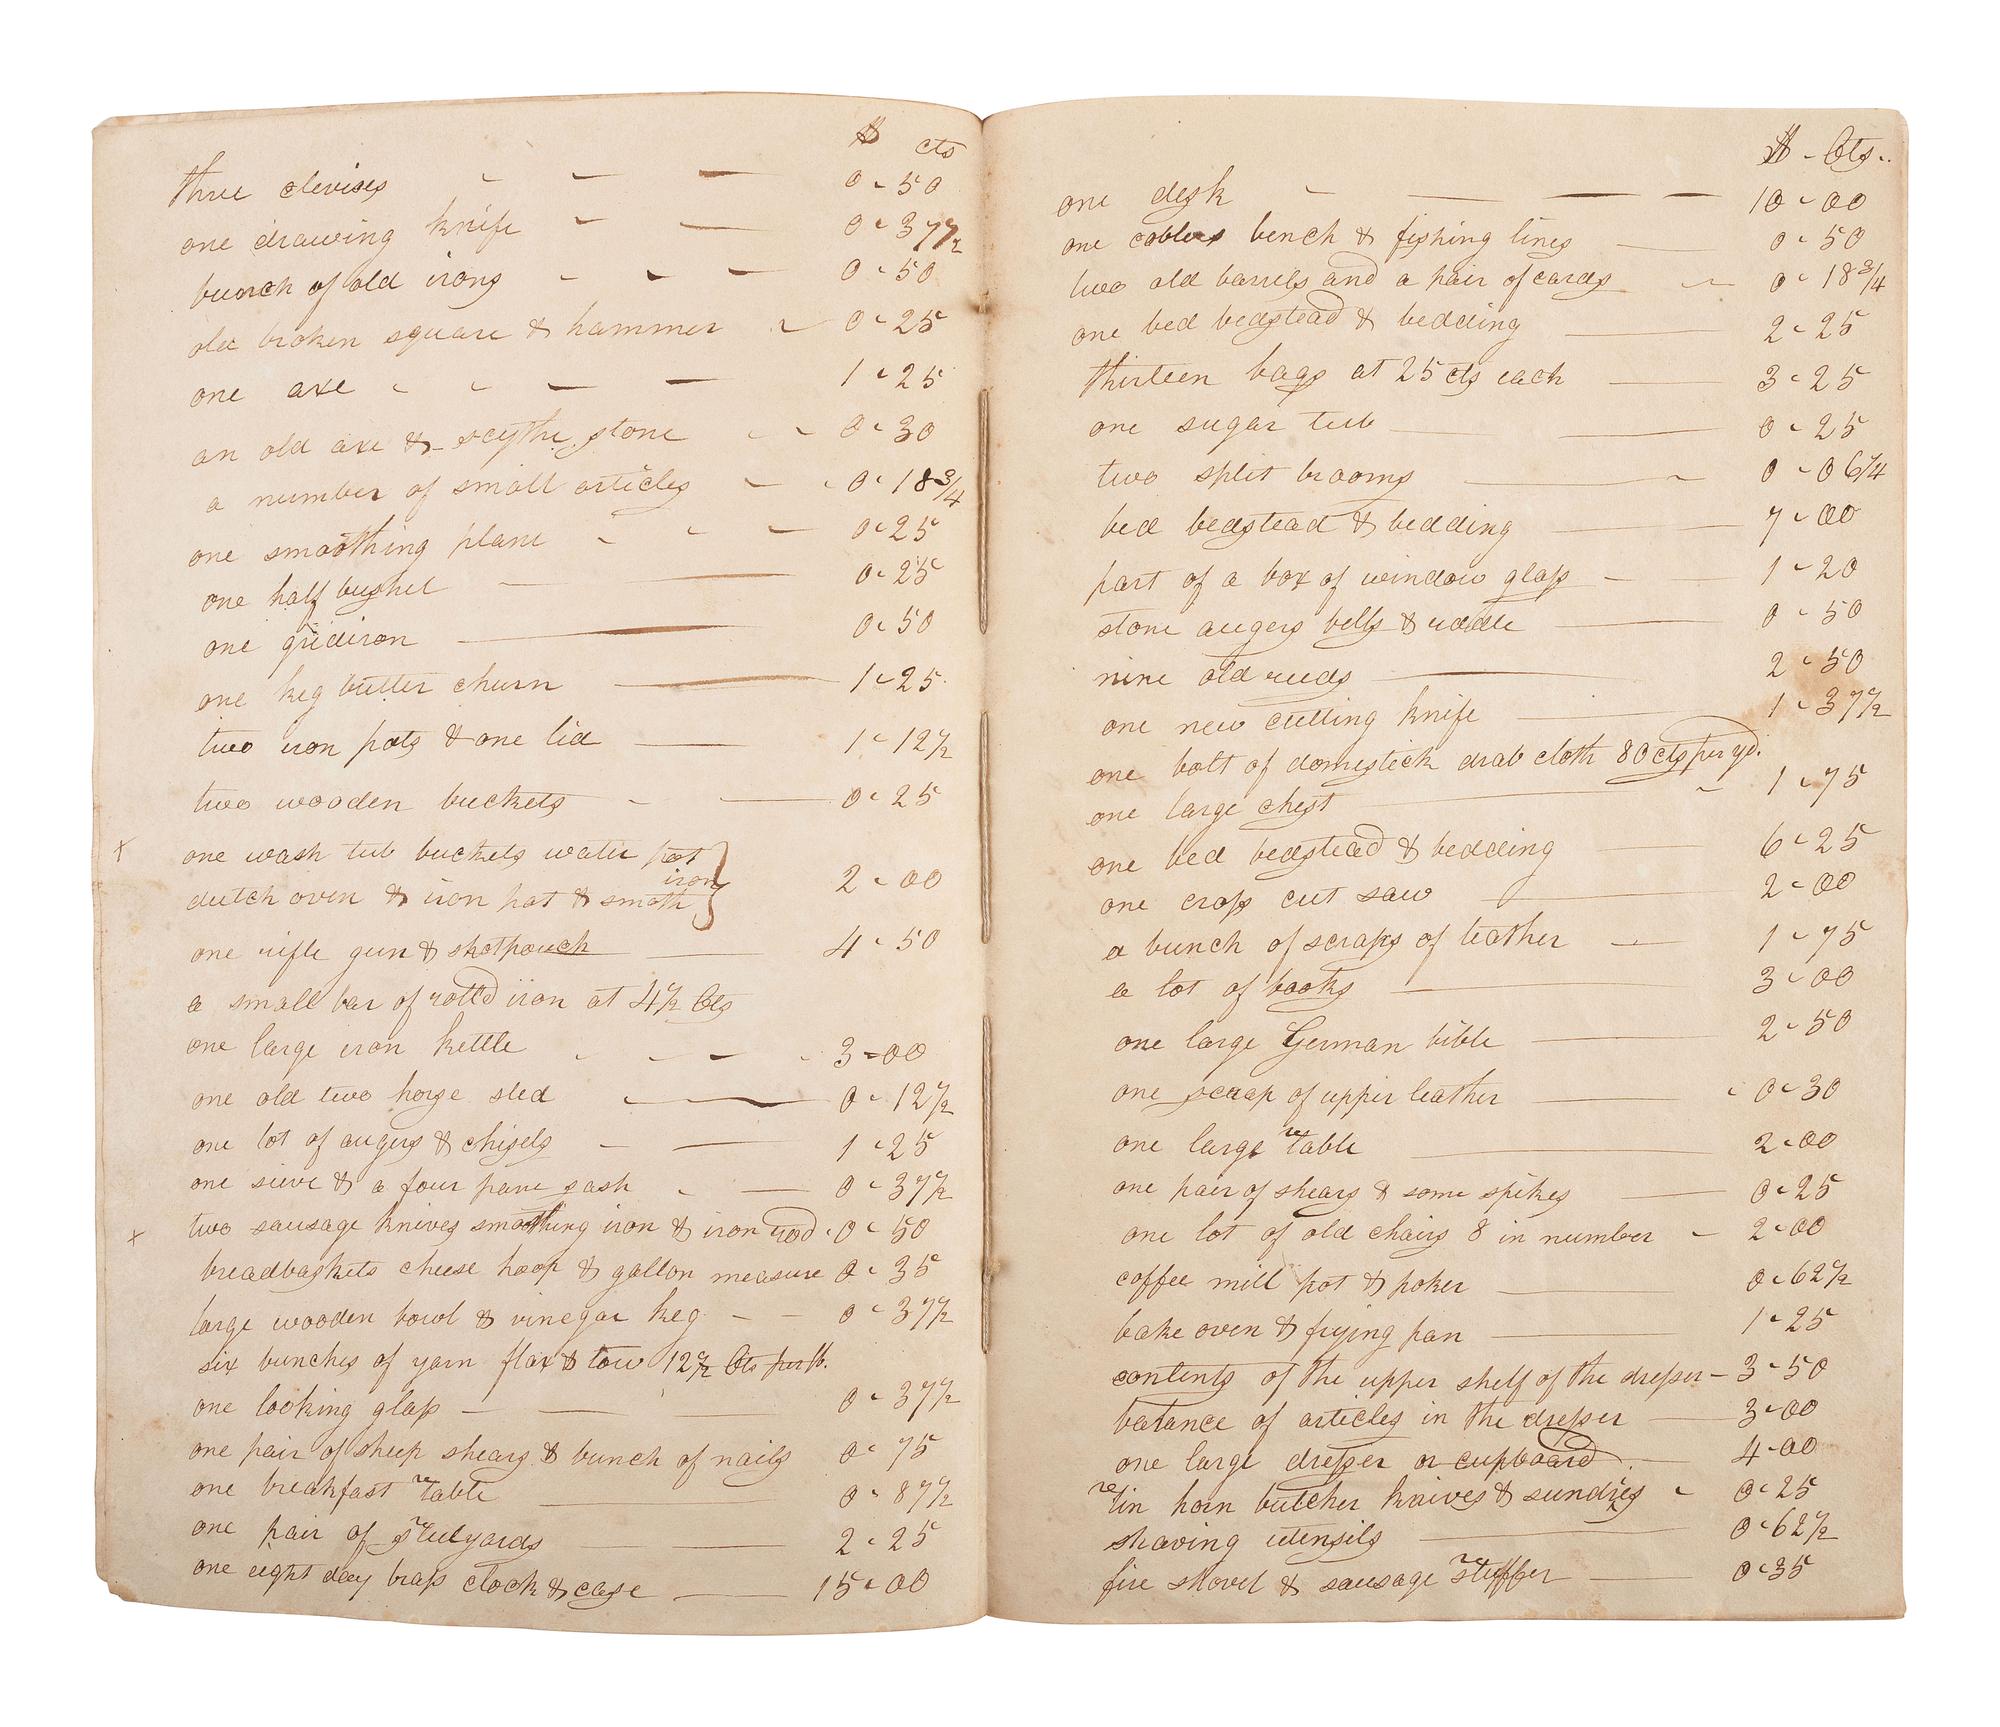 $ cts
three clevises - - - 0-50
one drawing knife - - 0-37½
bunch of old irons - - - 0-50
old broken square & hammer - 0-25
one axe - - - - 1-25
an old axe & scythe stone - - 0-30
a number of small articles - - 0-18¾
one smoothing plane - - - 0-25
one half bushel - 0-25
one gridiron - 0-50
one keg butter churn - 1-25
two iron pots & one lid - 1-12½
two wooden buckets - - 0-25
x one wash tub buckets water pot
iron
dutch oven & iron pot & smoth } 2-00
one rifle gun & shotpouch - 4-50
a small bar of roll'd iron at 4½ Cts
one large iron kettle - - - - 3-00
one old two horse sled - 0-12½
one lot of augers & chisels - - 1-25
one sieve & a four pane sash - - 0-37½
x two sausage knives smoothing iron & iron rod - 0-50
breadbaskets cheese hoop & gallon measure 0-35
large wooden bowl & vinegar keg - - 0-37½
six bunches of yarn flax & tow 12½ Cts per lb.
one looking glass - - - 0-37½
one pair of sheep shears & bunch of nails 0-75
one breakfast table - 0-87½
one pair of steelyards - 2-25
one eight day brass clock & case - 15-00
$ - Cts..
one desk - - - - 10-00
one coblers bench & fishing lines - 0-50
two old barrels and a pair of cards - 0-18¾
one bed bedstead & bedding - 2-25
thirteen bags at 25 cts each - 3-25
one sugar tub - - 0-25
two split brooms - 0-06¼
bed bedstead & bedding - 7-00
part of a box of window glass - 1-20
stone augers bells & riddle - 0-50
nine old reeds - 2-50
one new cutting knife - 1-37½
one bolt of domestick drab cloth 80 cts per yd.
one large chest - 1-75
one bed bedstead & bedding - 6-25
one cross cut saw - 2-00
a bunch of scraps of leather - 1-75
a lot of books - 3-00
one large German bible - 2-50
one scrap of upper leather - - 0-30
one large table - 2-00
one pair of shears & some spikes - 0-25
one lot of old chairs 8 in number - 2-00
coffee mill pot & poker - 0-62½
bake oven & frying pan - 1-25
contents of the upper shelf of the dresser - 3-50
balance of articles in the dresser - 3-00
one large dresser or cupboard - 4-00
tin horn butcher knives & sundries - 0-25
shaving utensils - 0-62½
fire shovel & sausage stuffer - 0-35